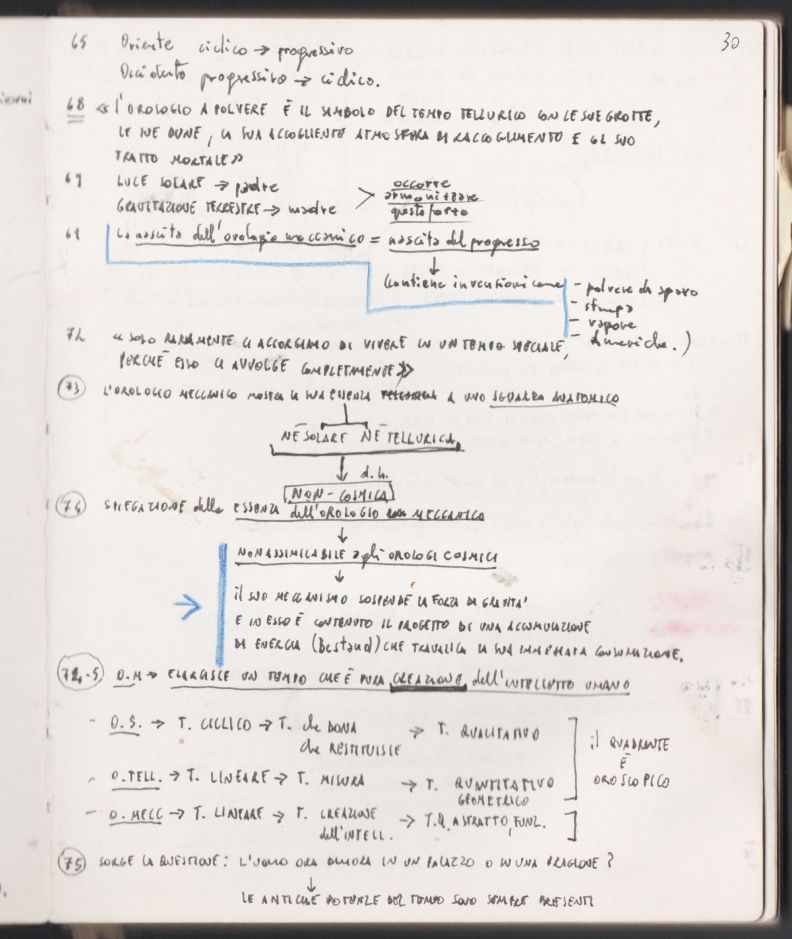 30
65 Oriente ciclico → progressivo
Occidente progressivo → ciclico.
68 «L'OROLOGIO A POLVERE È IL SIMBOLO DEL TEMPO TELLURICO CON LE SUE GROTTE,
LE SUE DUNE, LA SUA ACCOGLIENTE ATMOSFERA DI RACCOGLIMENTO E IL SUO
TRATTO MORTALE»
69 LUCE SOLARE → padre
GRAVITAZIONE TERRESTRE → madre
> occorre
armonizzare
queste forze
La nascita dell'orologio meccanico = nascita del progresso
↓
Contiene invenzioni come
- polvere da sparo
- stampa
- vapore
Americhe.)
72 «SOLO RARAMENTE CI ACCORGIAMO DI VIVERE IN UN TEMPO SPECIALE,
PERCHÉ ESSO CI AVVOLGE COMPLETAMENTE»
73 L'OROLOGIO MECCANICO MOSTRA LA SUA ESSENZA A UNO SGUARDO ANATOMICO
NÉ SOLARE NÉ TELLURICA,
↓ d.h.
NON-COSMICA
74 SPIEGAZIONE della ESSENZA dell'OROLOGIO MECCANICO
↓
NON ASSIMILABILE agli OROLOGI COSMICI
↓
→ il SUO MECCANISMO SOSPENDE LA FORZA DI GRAVITA'
E IN ESSO È CONTENUTO IL PROGETTO DI UNA ACCUMULAZIONE
DI ENERGIA (Bestand) CHE TRAVALICA LA SUA IMMEDIATA CONSUMAZIONE.
74-5 O.M → ELARGISCE UN TEMPO CHE È PURA CREAZIONE dell'INTELLETTO UMANO
- O.S. → T. CICLICO → T. che DONA → T. QUALITATIVO
che RESTITUISCE
- O.TELL. → T. LINEARE → T. MISURA → T. QUANTITATIVO
GEOMETRICO
il QUADRANTE
È
OROSCOPICO
- O.MECC → T. LINEARE → T. CREAZIONE → T.Q. ASTRATTO, FUNZ.
dell'INTELL.
75 SORGE LA QUESTIONE: L'UOMO ORA DIMORA IN UN PALAZZO O IN UNA PRIGIONE?
↓
LE ANTICHE POTENZE DEL TEMPO SONO SEMPRE PRESENTI